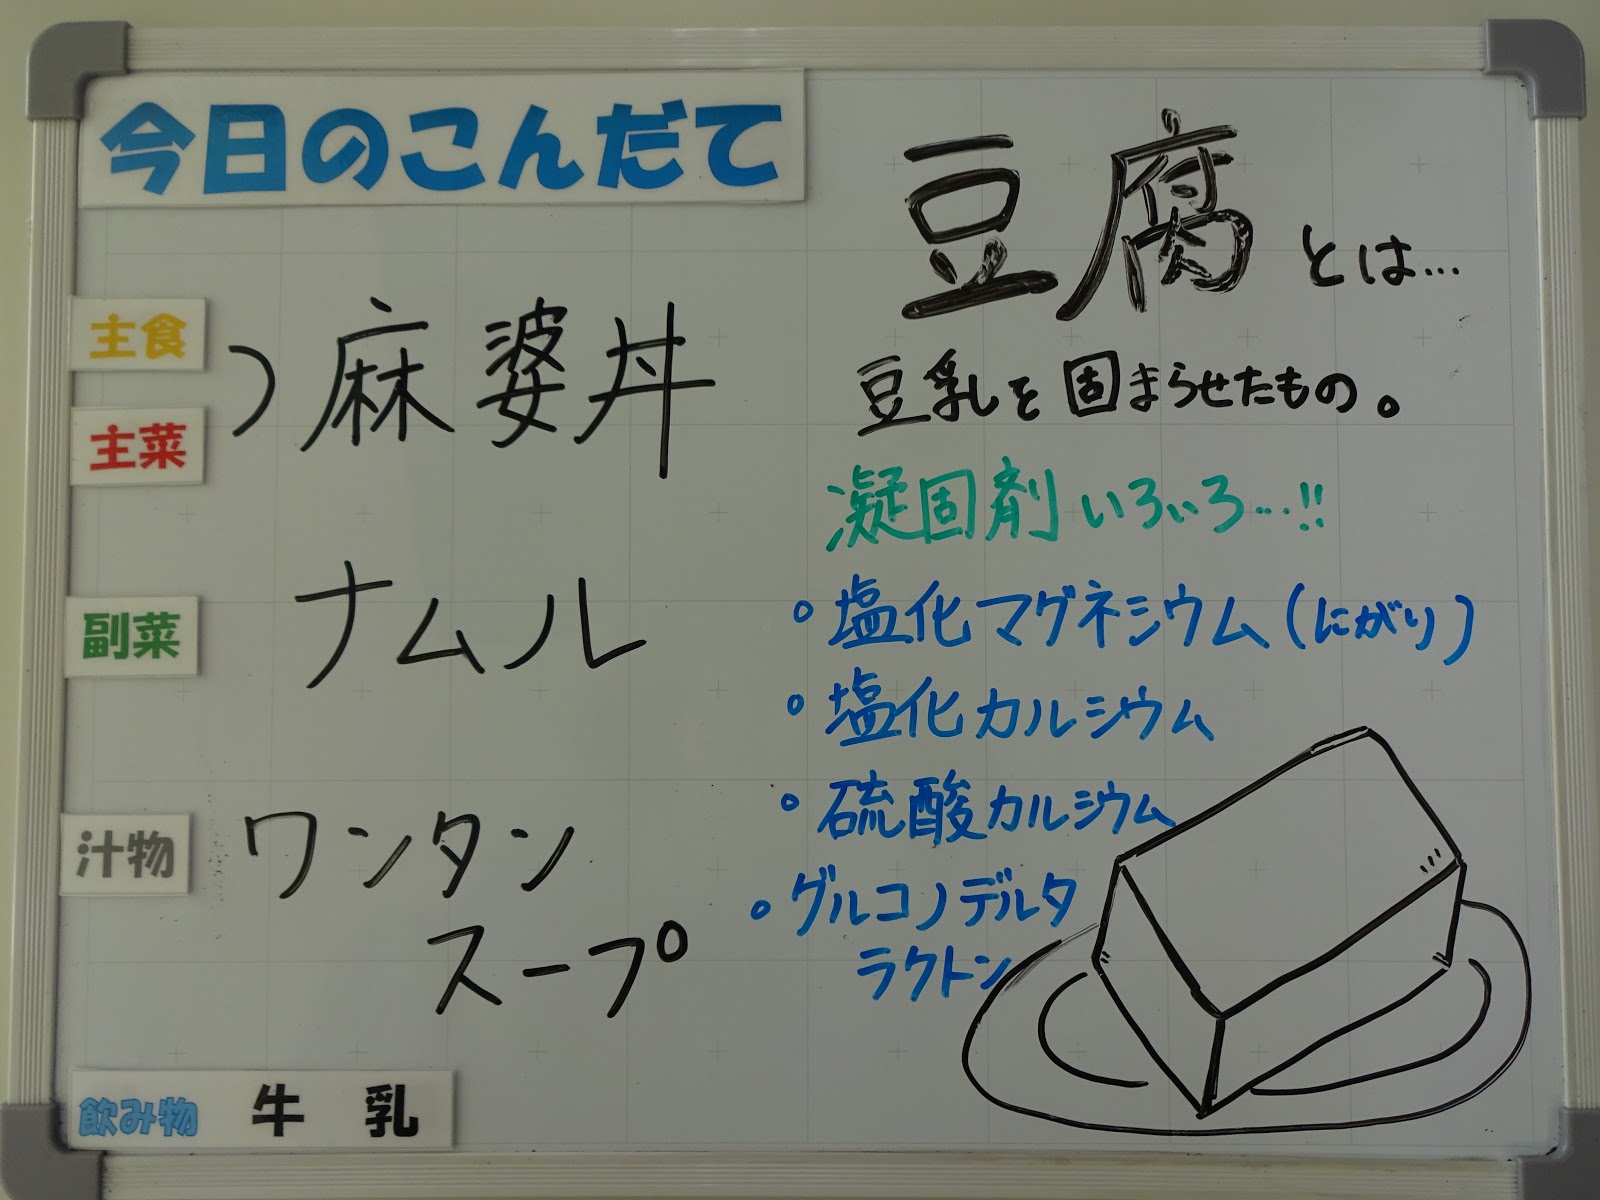 今日のこんだて
主食
主菜
麻婆丼
副菜
ナムル
汁物
ワンタン
スープ
飲み物 牛乳
豆腐とは…
豆乳を固まらせたもの。
凝固剤いろいろ…!!
・塩化マグネシウム(にがり)
・塩化カルシウム
・硫酸カルシウム
・グルコノデルタ
ラクトン